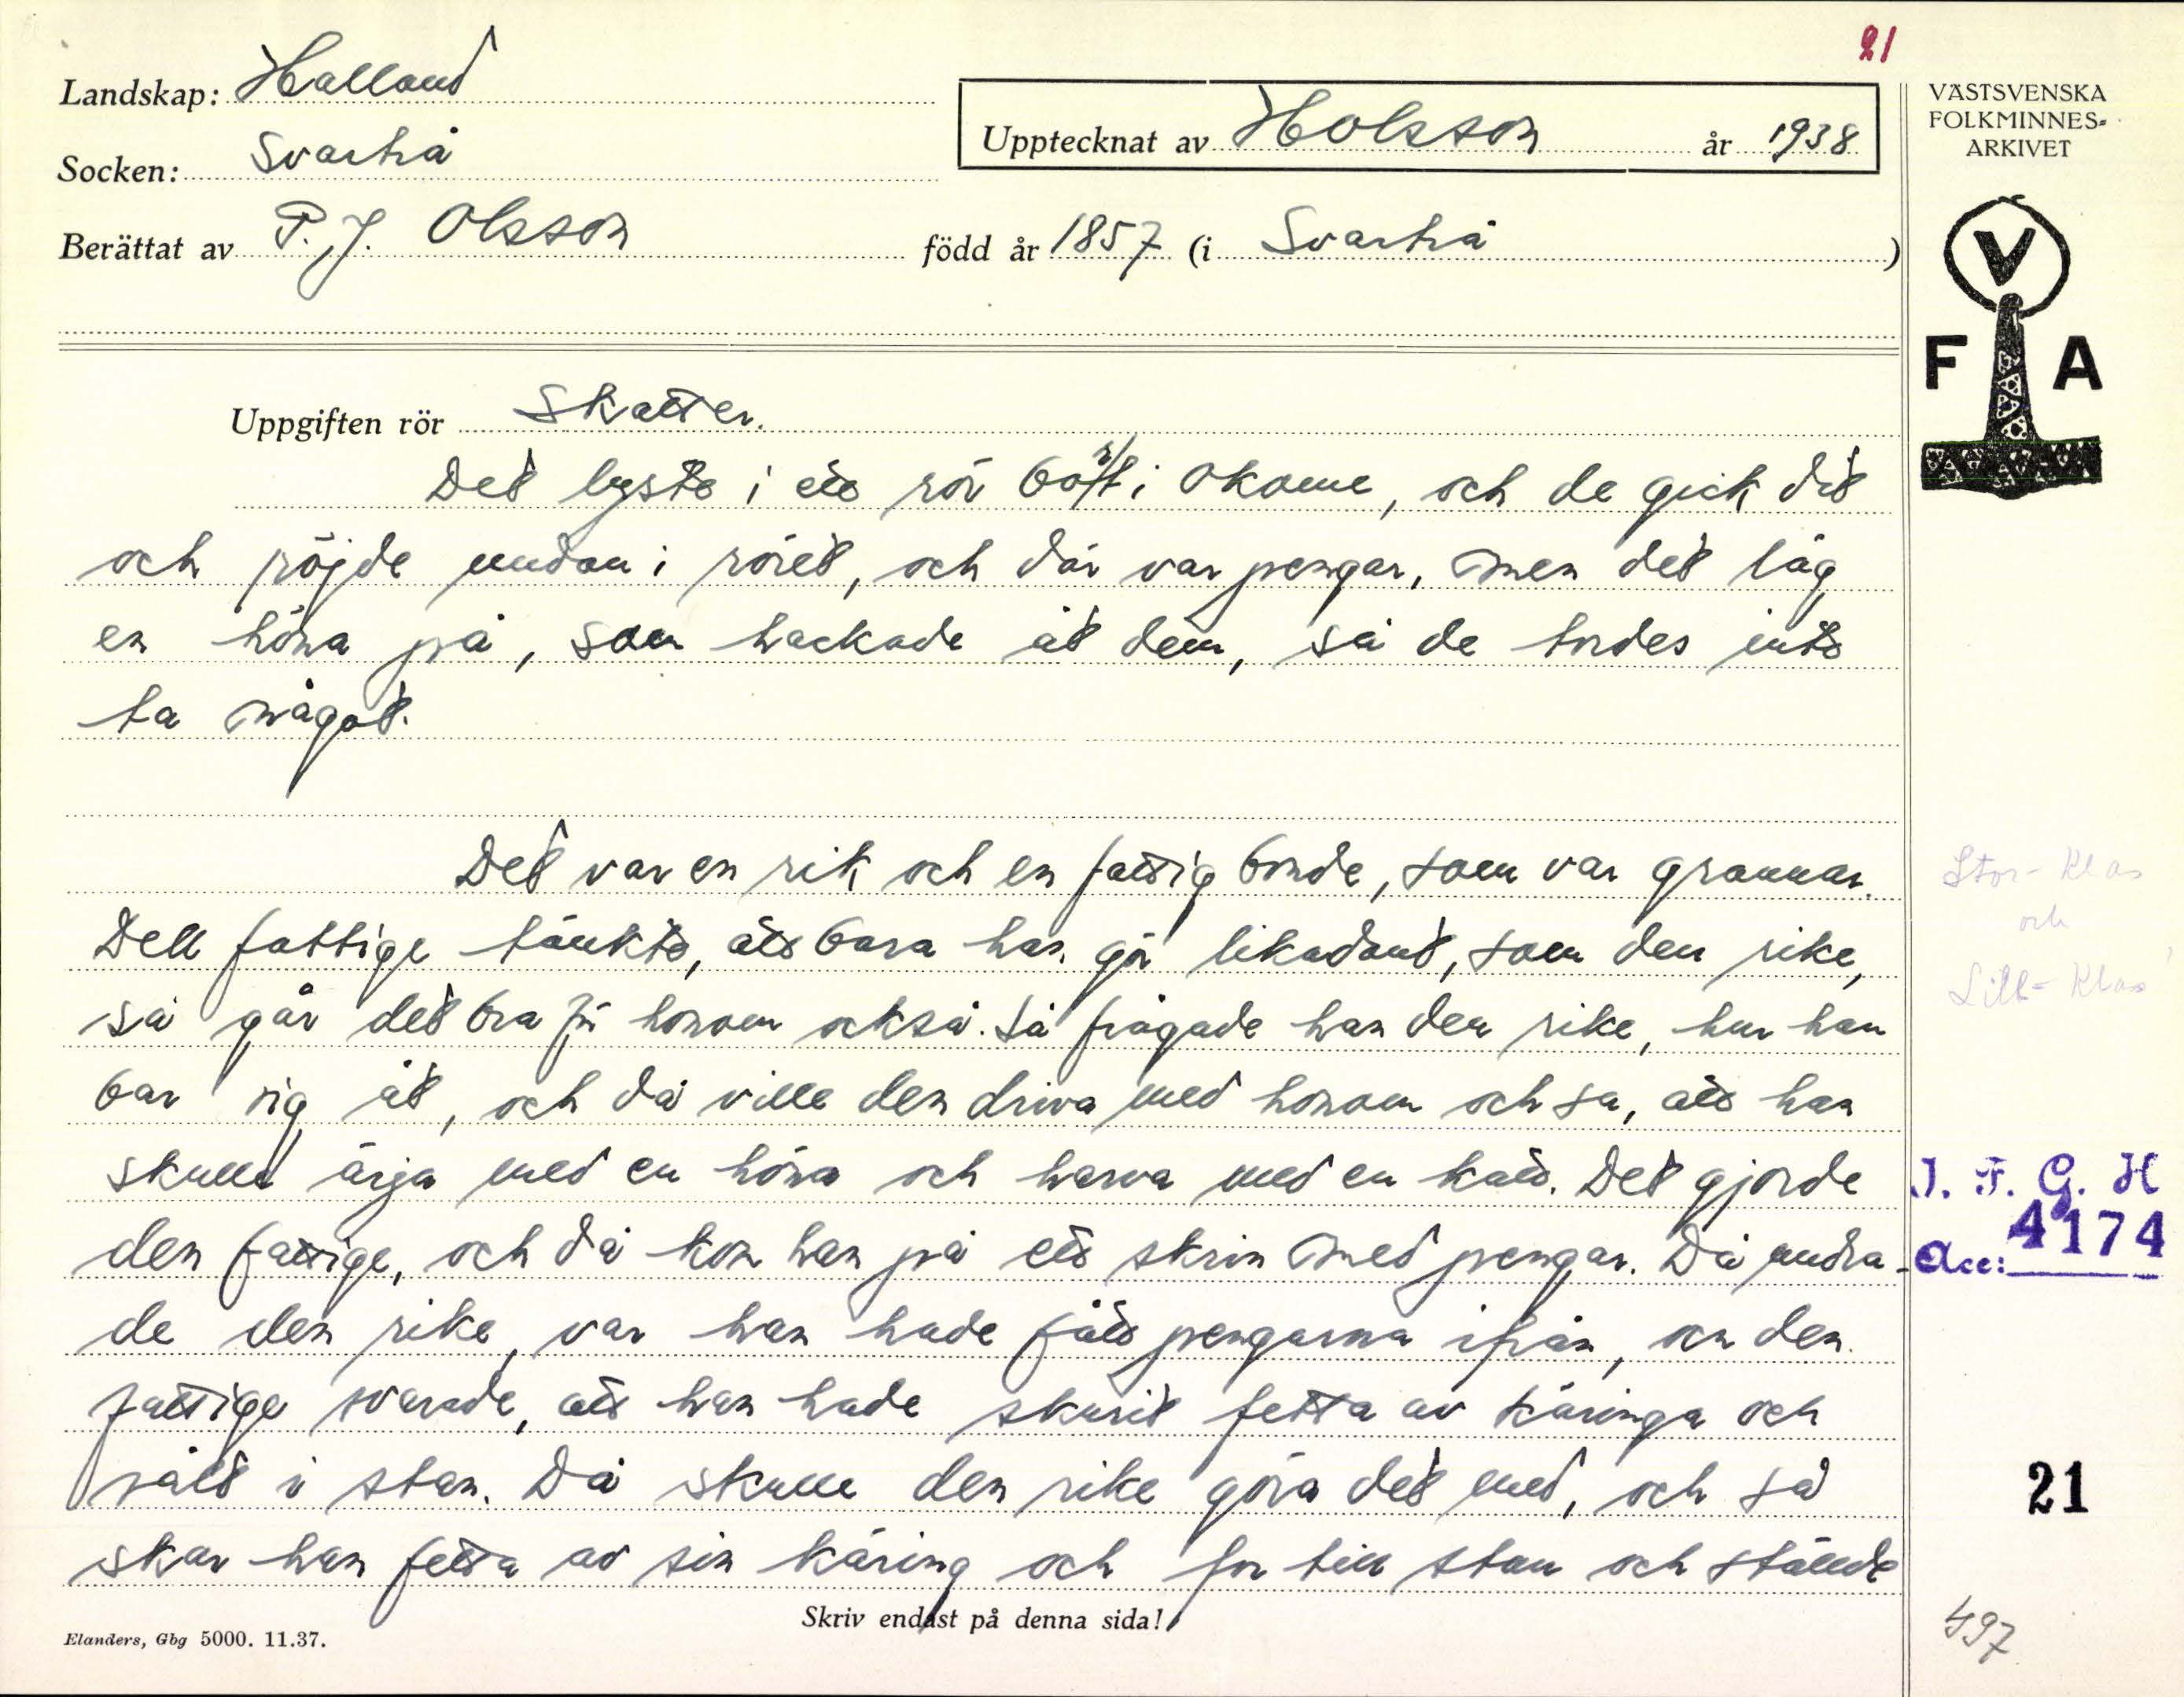 21
Landskap: Halland
Socken: Svartrå
Upptecknat av Holsson år 1938
Berättat av P.J. Olsson född år 1857 (i Svartrå)
VÄSTSVENSKA
FOLKMINNES-
ARKIVET
V
F A
Uppgiften rör Skatter.
Det lyste i ett rör bort i Okome, och de gick dit
och röjde undan i röret, och där var pengar, men det låg
en höna på, som hackade åt dem, så de tordes inte
ta något.
Det var en rik och en fattig bonde, som var grannar.
Dell fattige tänkte, att bara han gör likadant, som den rike,
så går det bra för honom också. Så frågade han den rike, hur han
bar sig åt, och då ville den driva med honom och sa, att han
skulle ärja med en höna och harva med en katt. Det gjorde
den fattige, och då kom han på ett skrin med pengar. Då undra-
de den rike, var han hade fått pengarna ifrån, och den
fattige svarade, att han hade skurit fetta av käringa och
sålt i stan. Då skulle den rike göra det med, och så
skar han fetta av sin käring och for till stan och ställde
Stor-Klas
och
Lill-Klas
I. F. G. H
Acc: 4174
21
497
Skriv endast på denna sida!
Elanders, Gbg 5000. 11.37.